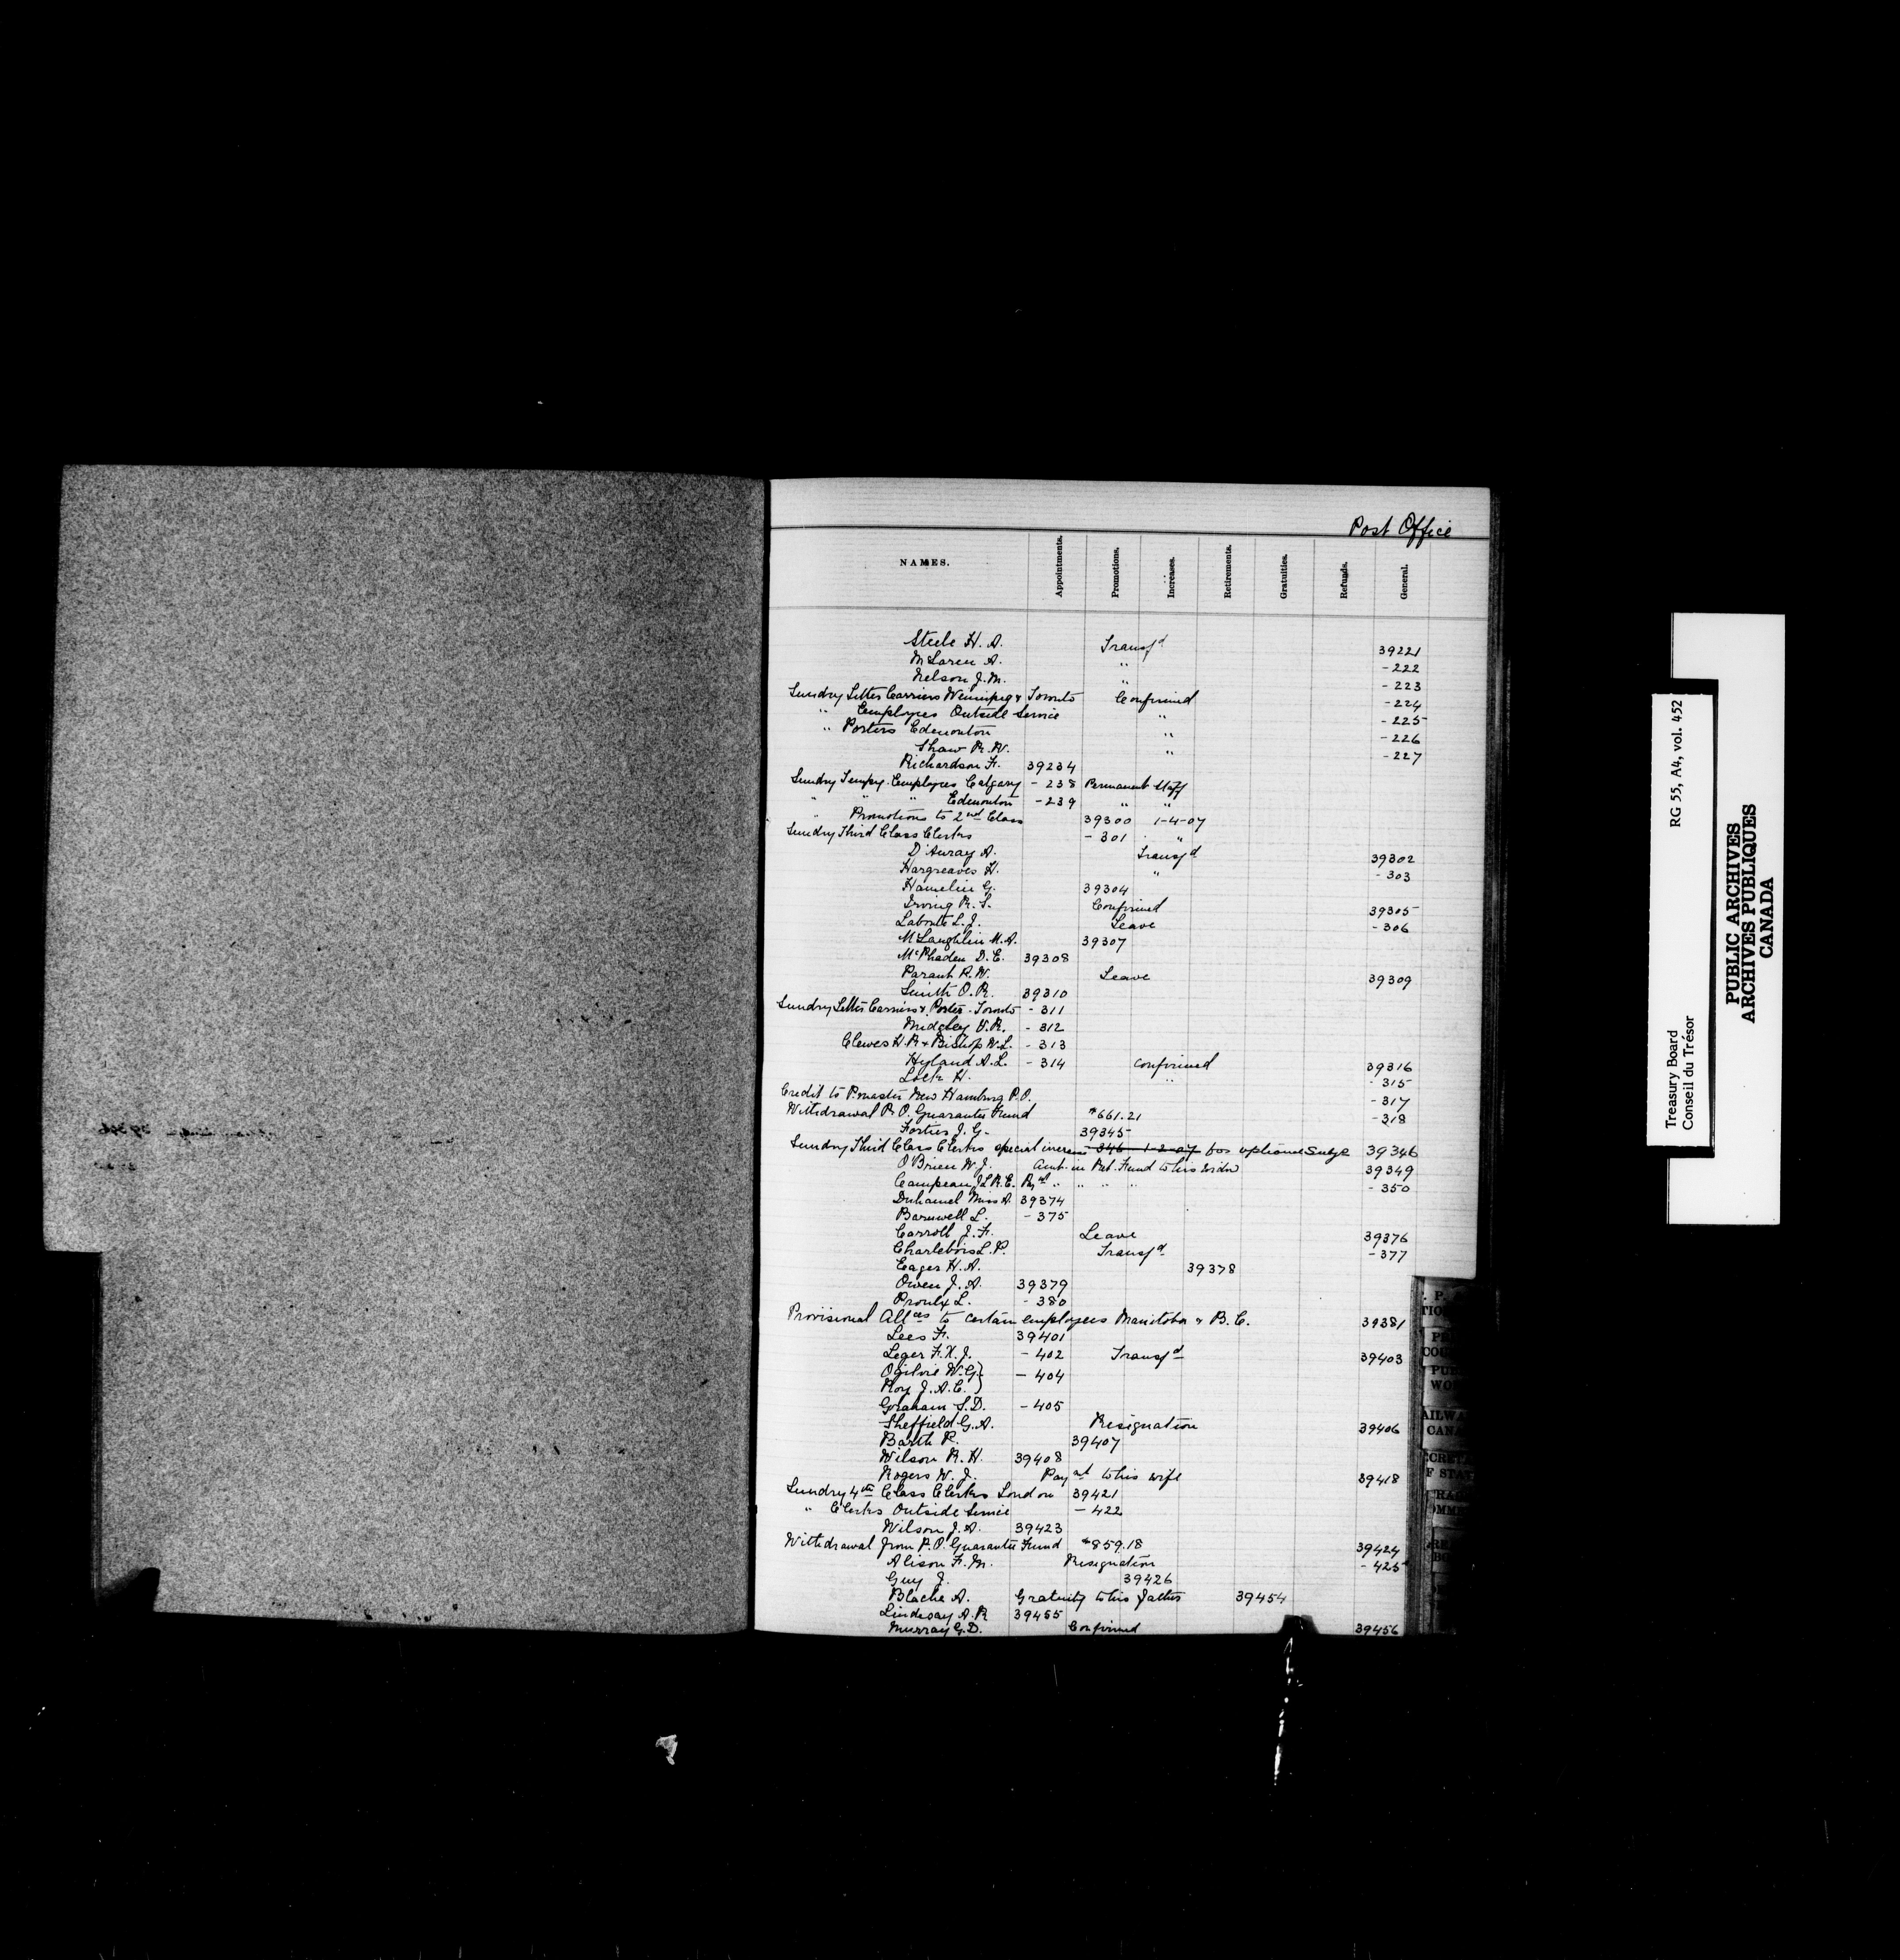 Post Office
NAMES. Appointments. Promotions. Increases. Retirements. Gratuities. Refunds. General.
Steele H. A. Transfd 39221
McLaren A. " -222
Nelson J. M. " -223
Sundry Letter Carriers Winnipeg & Toronto Confirmed -224
" Employees Outside Service " -225
" Porters Edmonton " -226
Shaw R. W. " -227
Richardson F. 39234
Sundry Tempy. Employees Calgary -238 Permanent Staff
" " " Edmonton -239 " "
" Promotions to 2nd Class 39300 1-4-07
Sundry Third Class Clerks -301 "
D'Auray A. Transfd 39302
Hargreaves H. " -303
Hamelin G. 39304
Irving R. S. Confirmed 39305
Labonté L. J. Leave -306
McLaughlin M. A. 39307
McPhaden D. E. 39308
Parant R. W. Leave 39309
Smith O. R. 39310
Sundry Letter Carriers & Porter - Toronto -311
Midgley V. R. -312
Clewes H. R & Bishop W. L. -313
Hyland A. L. -314 Confirmed 39316
Lock H. " -315
Credit to P.master New Hamburg P.O. -317
Withdrawal P. O. Guarantee Fund $661.21 -318
Fortier J. G. 39345
Sundry Third Class Clerks special increase 346 1-2-07 for optional Subjs 39346
O'Brien W. J. Amt. in Ret. Fund to his widow 39349
Campeau J. L. R. E. " " " " -350
Duhamel Miss A. 39374
Barnwell L. -375
Carroll J. F. Leave 39376
Charlebois L. P. Transfd -377
Eager H. A. 39378
Owen J. A. 39379
Proulx L. -380
Provisional Allces to certain employees Manitoba & B. C. 39381
Lees F. 39401
Leger F. X. J. -402 Transfd 39403
Ogilvie W. G. } -404
Roy J. A. E. }
Graham S. D. -405
Sheffield G. A. Resignation 39406
Barth R. 39407
Wilson R. H. 39408
Rogers W. J. Paymt to his wife 39418
Sundry 4th Class Clerks London 39421
" Clerks Outside Service -422
Wilson J. A. 39423
Withdrawal from P. O. Guarantee Fund $859.18 39424
Alison F. M. Resignation -425
Guy J. 39426
Blache A. Gratuity to his father 39454
Lindsay A. R 39455
Murray G. D. Confirmed 39456
RG 55, A4, vol. 452
Treasury Board
Conseil du Trésor
PUBLIC ARCHIVES
ARCHIVES PUBLIQUES
CANADA